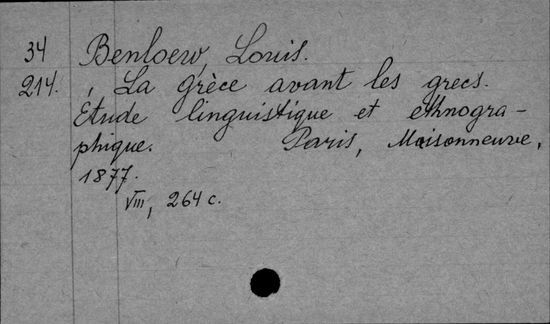 34 Benloew, Louis.
214. , La grèce avant les grecs.
Etude linguistique et ethnogra-
phique. Paris, Maisonneuve,
1877.
VIII, 264 c.